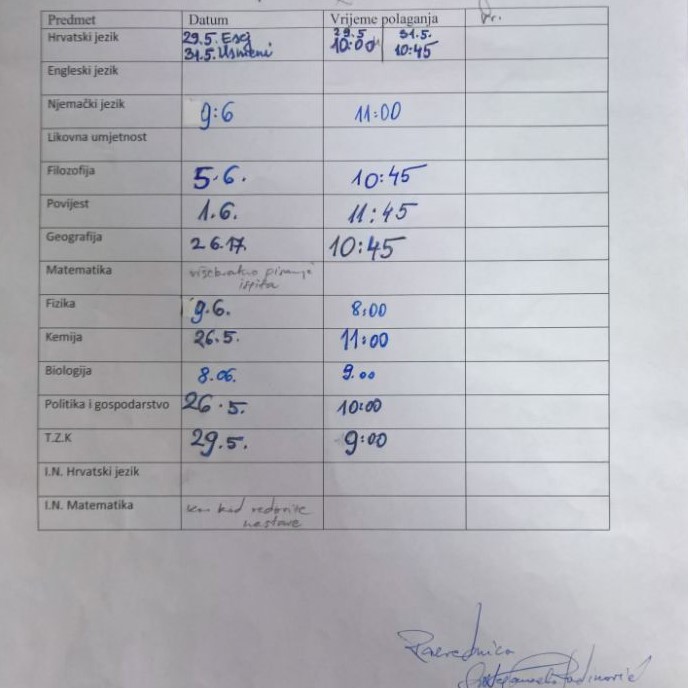 Predmet Datum Vrijeme polaganja
Hrvatski jezik 29.5. Esej 29.5 31.5.
31.5. Usmeni 10:00 10:45
Engleski jezik
Njemački jezik 9:6 11:00
Likovna umjetnost
Filozofija 5.6. 10:45
Povijest 1.6. 11:45
Geografija 2 6.17. 10:45
Matematika višekratno pisanje
ispita
Fizika 9.6. 8:00
Kemija 26.5. 11:00
Biologija 8.06. 9.00
Politika i gospodarstvo 26.5. 10:00
T.Z.K 29.5. 9:00
I.N. Hrvatski jezik
I.N. Matematika kao kod redovite
nastave
Razrednica